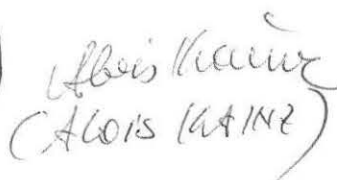 Alois Kainz
(ALOIS KAINZ)